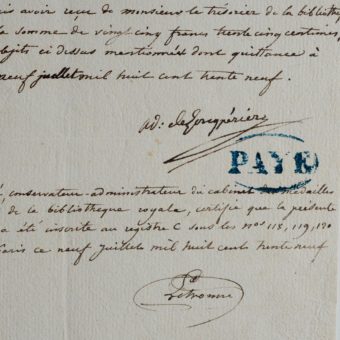 is avoir reçu de monsieur le trésorier de la biblioth
a somme de vingt cinq francs trente cinq centimes,
objets ci dessus mentionnés dont quittance à
neuf juillet mil huit cent trente neuf.
ad: de Longpérier
PAYÉ
conservateur-administrateur du cabinet des médailles
de la bibliothèque royale, certifie que la présente
a été inscrite au registre C sous les nos 118, 119, 120
Paris ce neuf juillet mil huit cent trente neuf
Letronne